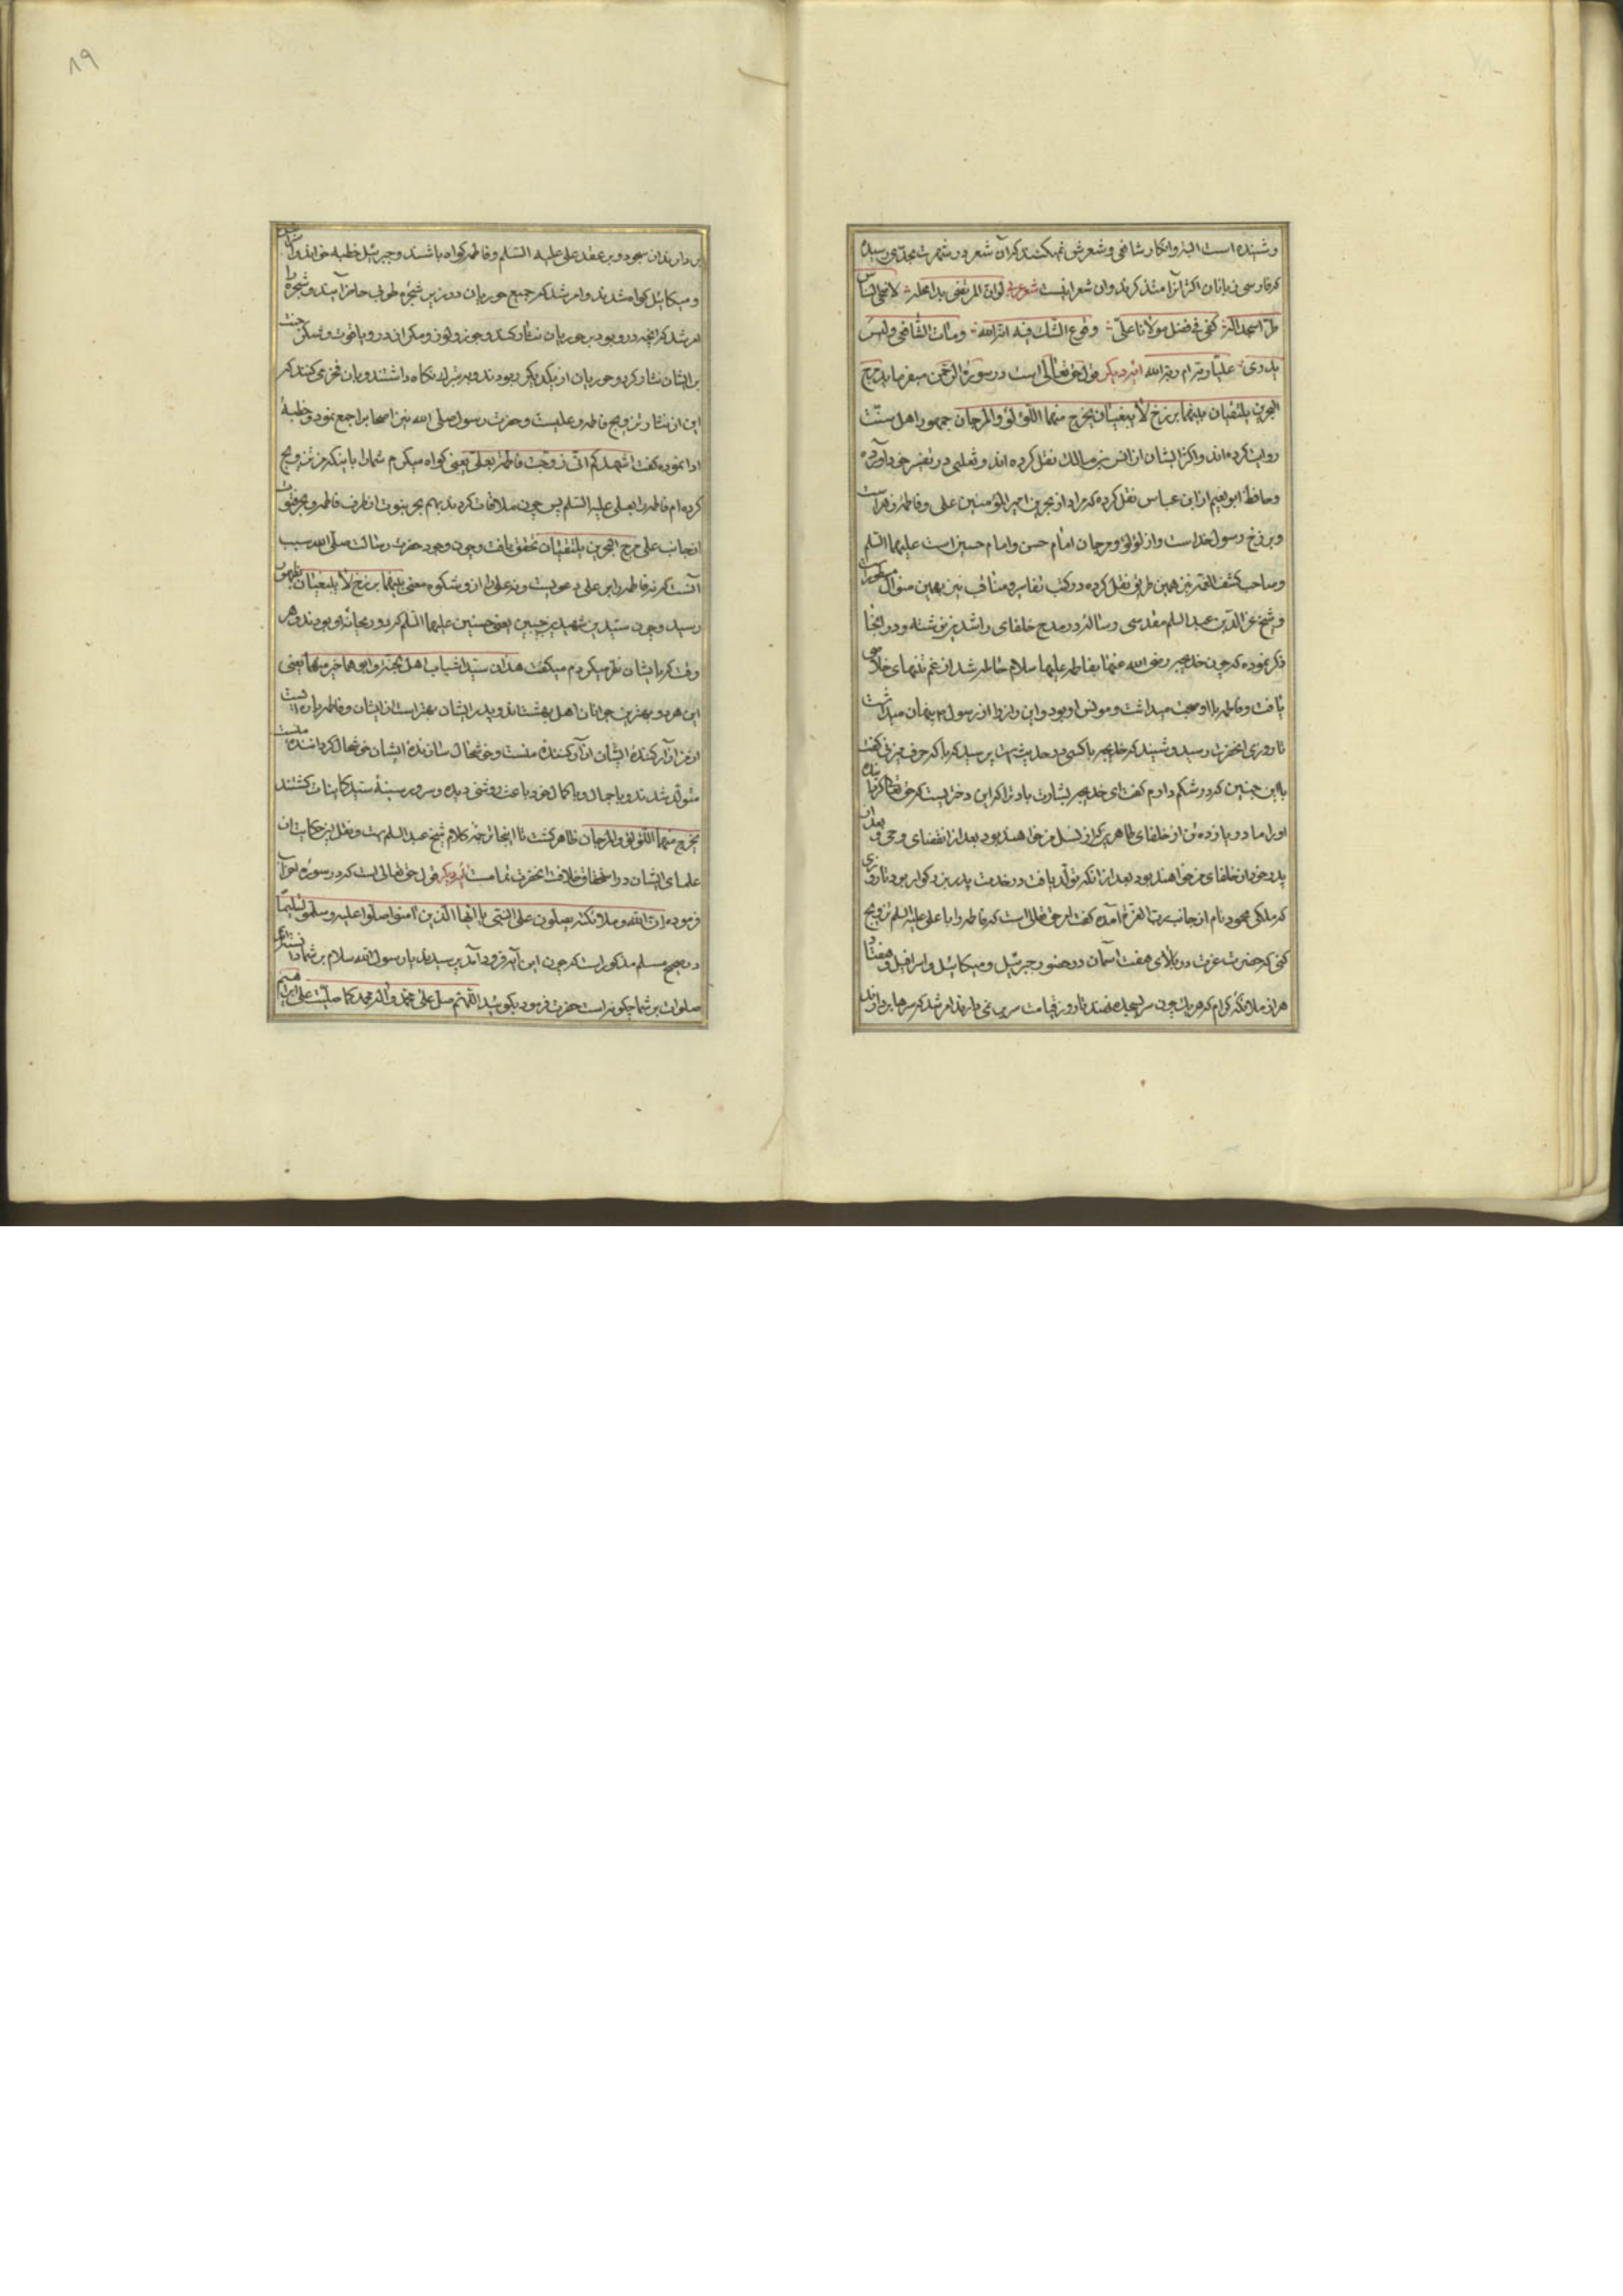 و شنیده است البته و انکار شافعی و شعرش نمیکنند که آن شعر در شهرت بحدی رسیده
که فارسی زبانان اکثر آنرا متذکرند و آن شعر اینست شعر لو ان المرتضی بدا محله لاضحی الناس
طرا سجدا له کفی فی فضل مولانا علی وقوع الشک فیه انه الله و مات الشافعی و لیس
یدری علیا ربه ام ربه الله آیه دیگر قول حق تعالی است در سورة الرحمن میفرماید مرج
البحرین یلتقیان بینهما برزخ لا یبغیان یخرج منهما اللؤلؤ و المرجان جمهور اهل سنت
روایت کرده اند و اکثر ایشان از انس بن مالک نقل کرده اند و ثعلبی در تفسیر خود آورده
و حافظ ابو نعیم از ابن عباس نقل کرده که مراد از بحرین امیر المؤمنین علی و فاطمه زهراست
و برزخ رسول خداست و از لؤلؤ و مرجان امام حسن و امام حسین است علیهما السلم
و صاحب کشف الغمه نیز همین طریق نقل کرده در کتب تفاسیر و مناقب نیز بهمین منوال مسطور است
و شیخ عز الدین عبد السلم مقدسی رساله در مدح خلفای راشدین نوشته و در انجا
ذکر نموده که چون خدیجه رضی الله عنها بفاطمه علیها سلام حامله شد از غم تنهای خلاصی
یافت و فاطمه با او صحبت میداشت و مونس او بود و این راز را از رسول پنهان میداشت
تا روزی انحضرت رسید و شنید که خدیجه با کسی در حدیث است پرسید که با که حرف میزنی گفت
با این جنین که در شکم دارم گفت ای خدیجه بشارت باد ترا که این دختریست که حق تعالی گرداننده
او را مادر یازده تن از خلفای طاهرین که از نسل من خواهند بود بعد از انقضای وحی و بعد از
پدر خود از خلفای من خواهند بود بعد از آنکه تولد یافت و در خدمت پدر بزرگوار بود تا روزی
که ملکی محمود نام از جانب رب العزة آمده گفت امر حق تعالی است که فاطمه را با علی علیه السلم تزویج
کنی که حضرت عزت در بالای هفت آسمان در حضور جبرئیل و میکائیل و اسرافیل و هفتاد
هزار ملائکه کرام که هر یک چون سر بسجده نهند تا روز قیامت سر بر نمی دارند امر شد که سرها بردارند
۸۹
بر دارند از سجود و بر عقد علی علیه السلم و فاطمه گواه باشند و جبرئیل خطبه خواند و اسرافیل
و میکائیل گواه شدند و امر شد که جمیع حوریان در زیر شجره طوبی حاضر آیند و شجره را
امر شد که انچه در و بود بر حوریان نثار کند و جوز و لوز و سکر از در و یاقوت و سکر جنت
بر ایشان نثار کرد و حوریان از یکدیگر ربودند و به تبرک نگاه داشتند و بآن فخر می کنند که
این از نثار تزویج فاطمه و علیست و حضرت رسول صلی الله نیز اصحاب را جمع نمود و خطبهٔ
ادا نموده گفت اشهدکم انی زوجت فاطمة بعلی یعنی گواه میگیرم شما را باینکه من تزویج
کرده ام فاطمه را بعلی علیه السلم پس چون ملاقات کردند بهم بحر نبوت از طرف فاطمه و بحر فتوت
از جانب علی مرج البحرین یلتقیان تحقق یافت و چون وجود حضرت رسالت صلی الله سبب
آنست که نه فاطمه را بر علی دعویست و نه علی را از و شکوه معنی بینهما برزخ لا یبغیان بظهور
رسید و چون سیدین شهیدین حبیبین یعنی حسنین علیهما السلم که دو ریحانهٔ او بودند و هر
وقت که بایشان نظر میکردم میگفت هذان سیدا شباب اهل الجنة و ابوهما خیر منهما یعنی
این هر دو بهترین جوانان اهل بهشت اند و پدر ایشان بهتر است از ایشان و فاطمه پاره ایست
از من ازار کنندهٔ ایشان ازار کنندهٔ منست و خوشحال سازندهٔ ایشان خوشحال گرداننده منست
متولد شدند و با جمال و با کمال خود باعث روشنی دیده و سرور سینهٔ سید کاینات گشتند
یخرج منهما اللؤلؤ و المرجان ظاهر گشت تا اینجا ترجمه کلام شیخ عبد السلم است و نقل این حکایت از
علمای ایشان در استحقاق خلافت انحضرت تمامست آیه دیگر قول حق تعالی است که در سوره احزاب
فرموده ان الله و ملائکته یصلون علی النبی یا ایها الذین آمنوا صلوا علیه و سلموا تسلیما
در صحیح مسلم مذکور است که چون این آیه فرود آمد پرسیدند یا رسول الله سلام بر شما دانسته ایم
صلوات بر شما چگونه است حضرت فرمود بگوئید اللهم صل علی محمد و آل محمد کما صلیت علی ابراهیم